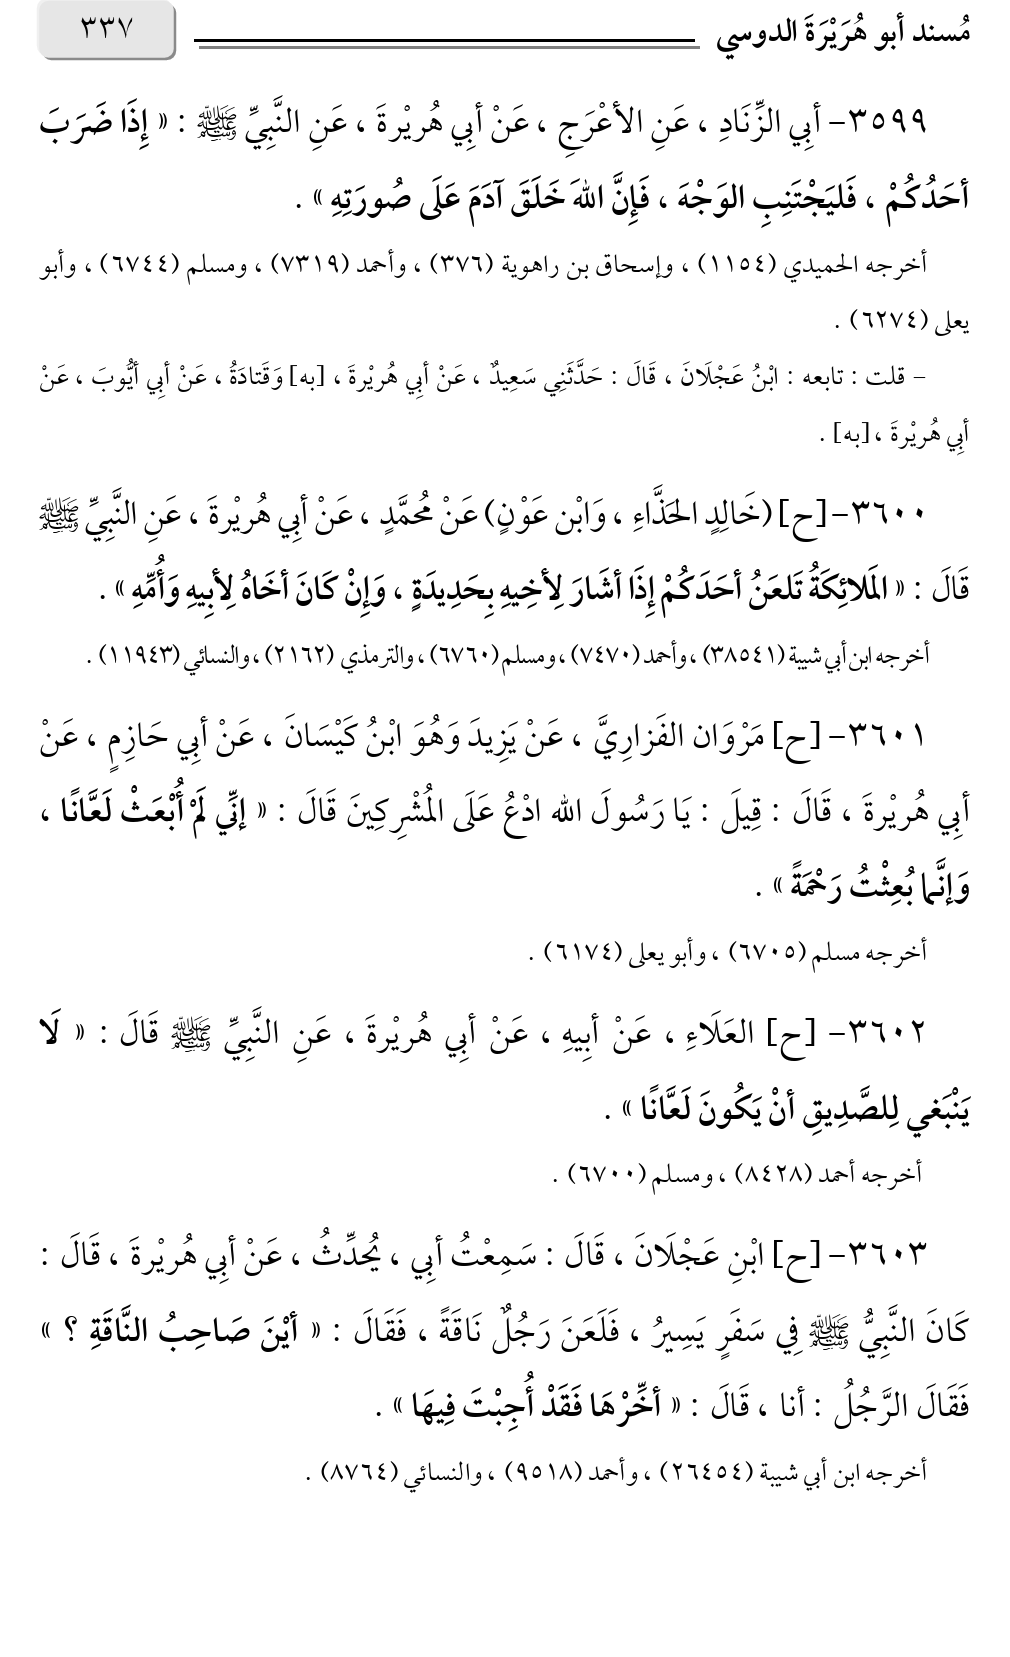 مُسند أبو هُرَيْرَةَ الدوسي ٣٣٧
٣٥٩٩- أبِي الزِّنَادِ ، عَنِ الأعْرَجِ ، عَنْ أبِي هُريْرةَ ، عَنِ النَّبِيِّ ﷺ : « إِذَا ضَرَبَ
أحَدُكُمْ ، فَليَجْتَنِبِ الوَجْهَ ، فَإِنَّ اللهَ خَلَقَ آدَمَ عَلَى صُورَتِهِ » .
أخرجه الحميدي (١١٥٤) ، وإسحاق بن راهوية (٣٧٦) ، وأحمد (٧٣١٩) ، ومسلم (٦٧٤٤) ، وأبو
يعلى (٦٢٧٤) .
– قلت : تابعه : ابْنُ عَجْلَانَ ، قَالَ : حَدَّثَنِي سَعِيدٌ ، عَنْ أبِي هُريْرةَ ، [به] وَقَتادَةُ ، عَنْ أبِي أيُّوبَ ، عَنْ
أبِي هُريْرةَ ، [به] .
٣٦٠٠- [ح] (خَالِدٍ الحَذَّاءِ ، وَابْن عَوْنٍ) عَنْ مُحمَّدٍ ، عَنْ أبِي هُريْرةَ ، عَنِ النَّبِيِّ ﷺ
قَالَ : « المَلائِكَةُ تَلعَنُ أحَدَكُمْ إِذَا أشَارَ لِأخِيهِ بِحَدِيدَةٍ ، وَإِنْ كَانَ أخَاهُ لِأبِيهِ وَأُمِّهِ » .
أخرجه ابن أبي شيبة (٣٨٥٤١) ، وأحمد (٧٤٧٠) ، ومسلم (٦٧٦٠) ، والترمذي (٢١٦٢) ، والنسائي (١١٩٤٣) .
٣٦٠١- [ح] مَرْوَان الفَزارِيَّ ، عَنْ يَزِيدَ وَهُوَ ابْنُ كَيْسَانَ ، عَنْ أبِي حَازِمٍ ، عَنْ
أبِي هُريْرةَ ، قَالَ : قِيلَ : يَا رَسُولَ الله ادْعُ عَلَى المُشْرِكِينَ قَالَ : « إنِّي لَمْ أُبْعَثْ لَعَّانًا ،
وَإنَّما بُعِثْتُ رَحْمَةً » .
أخرجه مسلم (٦٧٠٥) ، وأبو يعلى (٦١٧٤) .
٣٦٠٢- [ح] العَلَاءِ ، عَنْ أبِيهِ ، عَنْ أبِي هُريْرةَ ، عَنِ النَّبِيِّ ﷺ قَالَ : « لَا
يَنْبَغي لِلصَّدِيقِ أنْ يَكُونَ لَعَّانًا » .
أخرجه أحمد (٨٤٢٨) ، ومسلم (٦٧٠٠) .
٣٦٠٣- [ح] ابْنِ عَجْلَانَ ، قَالَ : سَمِعْتُ أبِي ، يُحدِّثُ ، عَنْ أبِي هُريْرةَ ، قَالَ :
كَانَ النَّبِيُّ ﷺ فِي سَفَرٍ يَسِيرُ ، فَلَعَنَ رَجُلٌ نَاقَةً ، فَقَالَ : « أيْنَ صَاحِبُ النَّاقَةِ ؟ »
فَقَالَ الرَّجُلُ : أنا ، قَالَ : « أخِّرْهَا فَقَدْ أُجِبْتَ فِيهَا » .
أخرجه ابن أبي شيبة (٢٦٤٥٤) ، وأحمد (٩٥١٨) ، والنسائي (٨٧٦٤) .